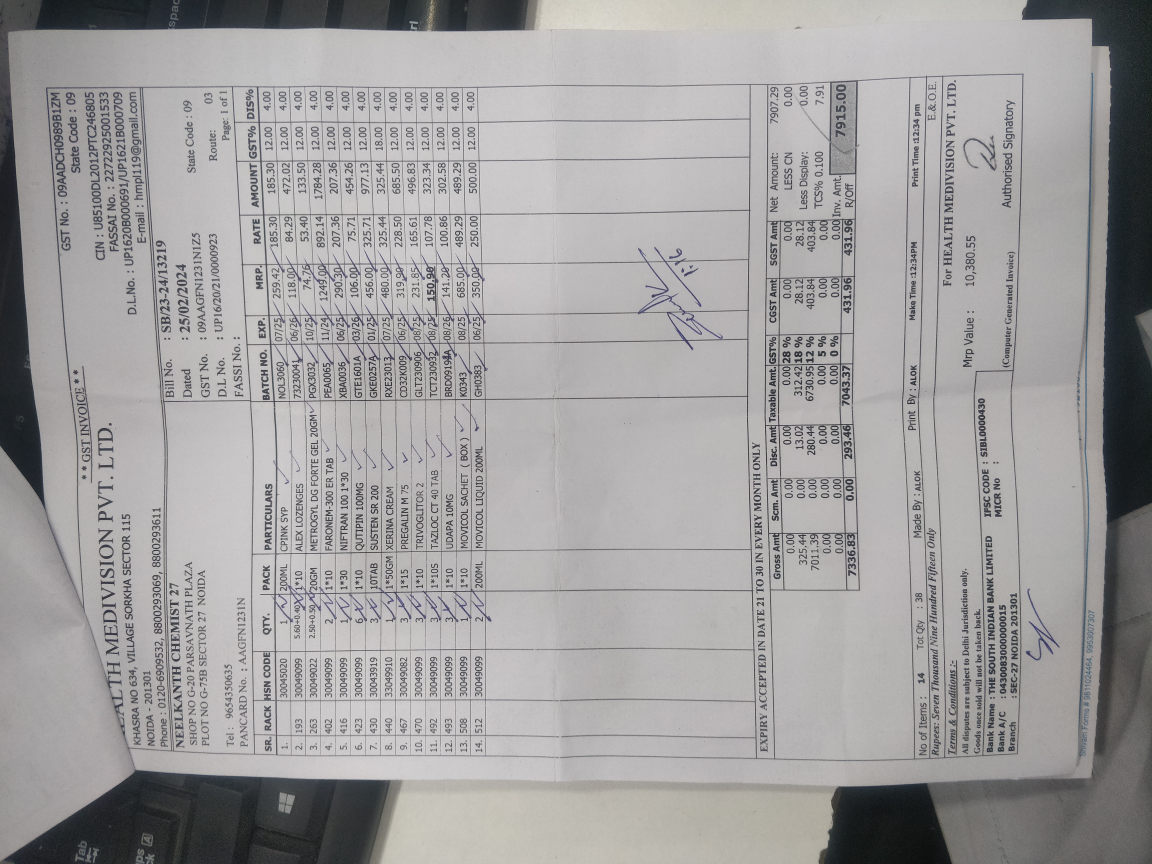 * * GST INVOICE * *
GST No. : 09AADCH0989B1ZM
State Code : 09
ALTH MEDIVISION PVT. LTD.
CIN : U85100DL2012PTC246805
KHASRA NO 634, VILLAGE SORKHA SECTOR 115
FASSAI No. : 22722925001533
NOIDA - 201301
D.L.No. : UP1620B000691/UP1621B0000709
Phone : 0120-6909532, 8800293069, 8800293611
E-mail : hmpl119@gmail.com
NEELKANTH CHEMIST 27
Bill No. : SB/23-24/13219
SHOP NO G-20 PARSAVNATH PLAZA
Dated : 25/02/2024
PLOT NO G-75B SECTOR 27 NOIDA
GST No. : 09AAGFN1231N1Z5 State Code : 09
D.L No. : UP16/20/21/0000923 Route: 03
Tel : 9654350635
FASSI No. : Page: 1 of 1
PANCARD No. : AAGFN1231N
SR. RACK HSN CODE QTY. PACK PARTICULARS BATCH NO. EXP. MRP. RATE AMOUNT GST% DIS%
1. 30045020 1 200ML CPINK SYP NOL3060 07/25 259.42 185.30 185.30 12.00 4.00
2. 193 30049099 5.60+0.40 1*10 ALEX LOZENGES 7323004 06/26 118.00 84.29 472.02 12.00 4.00
3. 263 30049022 2.50+0.50 20GM METROGYL DG FORTE GEL 20GM PGX3032 10/25 74.76 53.40 133.50 12.00 4.00
4. 402 30049099 2 1*10 FARONEM-300 ER TAB PEA0065 11/24 1249.00 892.14 1784.28 12.00 4.00
5. 416 30049099 1 1*30 NIFTRAN 100 1*30 XBA0036 06/25 290.30 207.36 207.36 12.00 4.00
6. 423 30049099 6 1*10 QUTIPIN 100MG GTE1601A 03/26 106.00 75.71 454.26 12.00 4.00
7. 430 30043919 3 10TAB SUSTEN SR 200 GKE0257A 01/25 456.00 325.71 977.13 12.00 4.00
8. 440 33049910 1 1*50GM XERINA CREAM RXE23013 07/25 480.00 325.44 325.44 18.00 4.00
9. 467 30049082 3 1*15 PREGALIN M 75 CD32K009 06/25 319.90 228.50 685.50 12.00 4.00
10. 470 30049099 3 1*10 TRIVOGLITOR 2 GLT230906 08/25 231.85 165.61 496.83 12.00 4.00
11. 492 30049099 3 1*10S TAZLOC CT 40 TAB TCT230932 08/25 150.90 107.78 323.34 12.00 4.00
12. 493 30049099 3 1*10 UDAPA 10MG 08/26 141.20 100.86 302.58 12.00 4.00
13. 508 30049099 1 1*10 MOVICOL SACHET ( BOX ) KI0343 08/25 685.00 489.29 489.29 12.00 4.00
14. 512 30049099 2 200ML MOVICOL LIQUID 200ML GH0383 06/25 350.00 250.00 500.00 12.00 4.00
EXPIRY ACCEPTED IN DATE 21 TO 30 IN EVERY MONTH ONLY
Gross Amt Scm. Amt Disc. Amt Taxable Amt. GST% CGST Amt SGST Amt Net Amount: 7907.29
0.00 0.00 0.00 0.00 28 % 0.00 0.00 LESS CN 0.00
325.44 0.00 13.02 312.42 18 % 28.12 28.12 Less Display: 0.00
7011.39 0.00 280.44 6730.95 12 % 403.84 403.84 TCS% 0.100 7.91
0.00 0.00 0.00 0.00 5 % 0.00 0.00
0.00 0.00 0.00 0.00 0 % 0.00 0.00 Inv. Amt. 7915.00
7336.83 0.00 293.46 7043.37 431.96 431.96 R/Off
No of Items : 14 Tot Qty : 38 Made By : ALOK Print By : ALOK Make Time :12:34PM Print Time :12:34 pm
Rupees: Seven Thousand Nine Hundred Fifteen Only E.&.O.E.
Terms & Conditions :- For HEALTH MEDIVISION PVT. LTD.
All disputes are subject to Delhi Jurisdiction only.
Goods once sold will not be taken back. Mrp Value : 10,380.55
Bank Name : THE SOUTH INDIAN BANK LIMITED IFSC CODE : SIBL0000430
Bank A/C : 0430083000000015 MICR No :
Branch : SEC-27 NOIDA 201301 (Computer Generated Invoice) Authorised Signatory